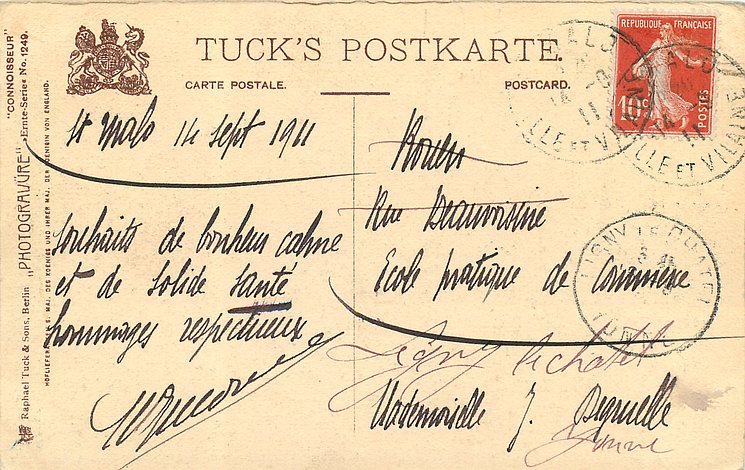 "CONNOISSEUR"
"PHOTOGRAVÜRE" Ernte-Serie No. 1249.
Raphael Tuck & Sons, Berlin
HOFLIEFERANTEN S. MAJ. DES KOENIGS UND IHRER MAJ. DER KOENIGIN VON ENGLAND.
TUCK'S POSTKARTE.
CARTE POSTALE.
POSTCARD.
St Malo 14 Sept 1911
Souhaits de bonheur calme
et de solide santé
hommages respectueux
RÉPUBLIQUE FRANÇAISE
10c
POSTES
ILLE ET VILAINE
ILLE ET VILAINE
Rouen
Rue Beauvoisine
Ecole pratique de Commerce
LIGNY LE CHATEL
YONNE
Ligny le chatel
Mademoiselle J. Degruelle
Yonne